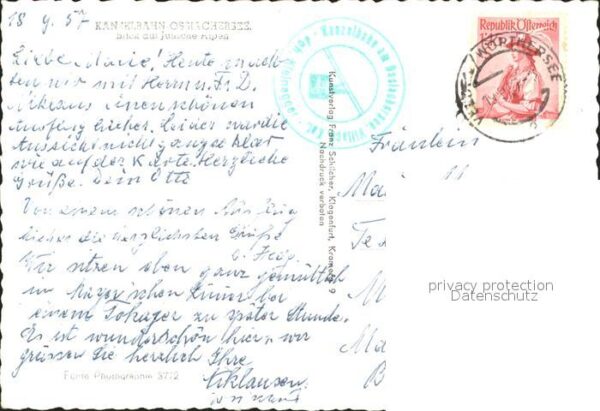 18 9. 57
KANZELBAHN-OSSIACHERSEE.
Blick auf Julische-Alpen
Liebe Marie! Heute mach-
ten wir mit Herrn u. Fr. D.
einen schönen
Ausflug hieher. Leider war die
Aussicht nicht ganz so klar
wie auf der Karte. Herzliche
Grüße. Dein Otto
Von einem schönen Ausflug
hieher die herzlichsten Grüße
Wir sitzen oben ganz gemütlich
im
einem Tokayer zu später Stunde.
Es ist wunderschön hier, wir
grüssen Sie herzlich Ihre
Echte Photographie 3772
Kunstverlag Franz Schilcher, Klagenfurt, Kramerg. 9
Nachdruck verboten
Kanzelbahn am Ossiachersee
Villach
Republik Österreich
WÖRTHERSEE
Fräulein
Ma
Te
M
Ma
B
privacy protection
Datenschutz